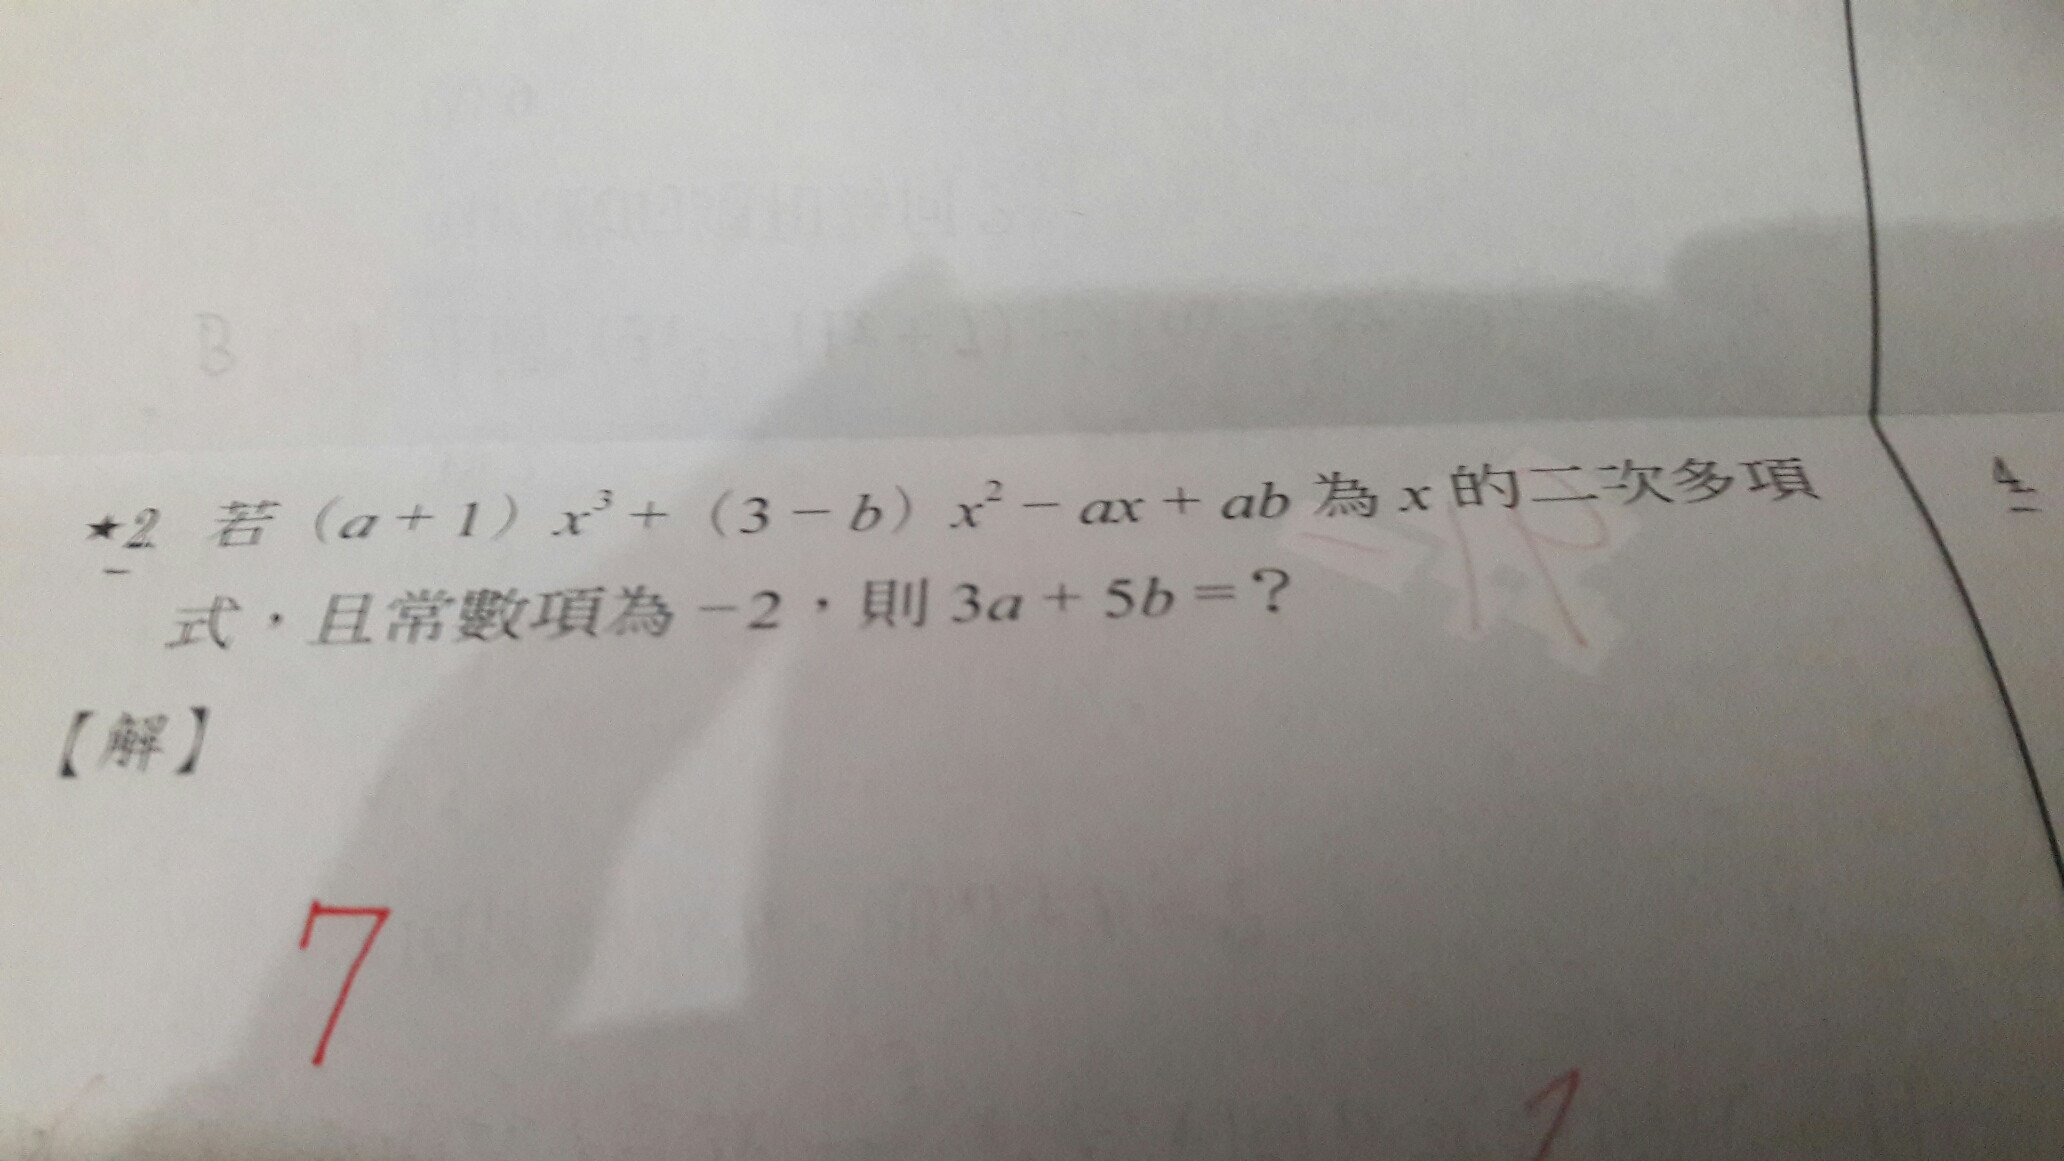 ★2 若（a＋1）x³＋（3－b）x²－ax＋ab 為 x 的二次多項
式，且常數項為－2，則 3a＋5b＝？
【解】
7
4